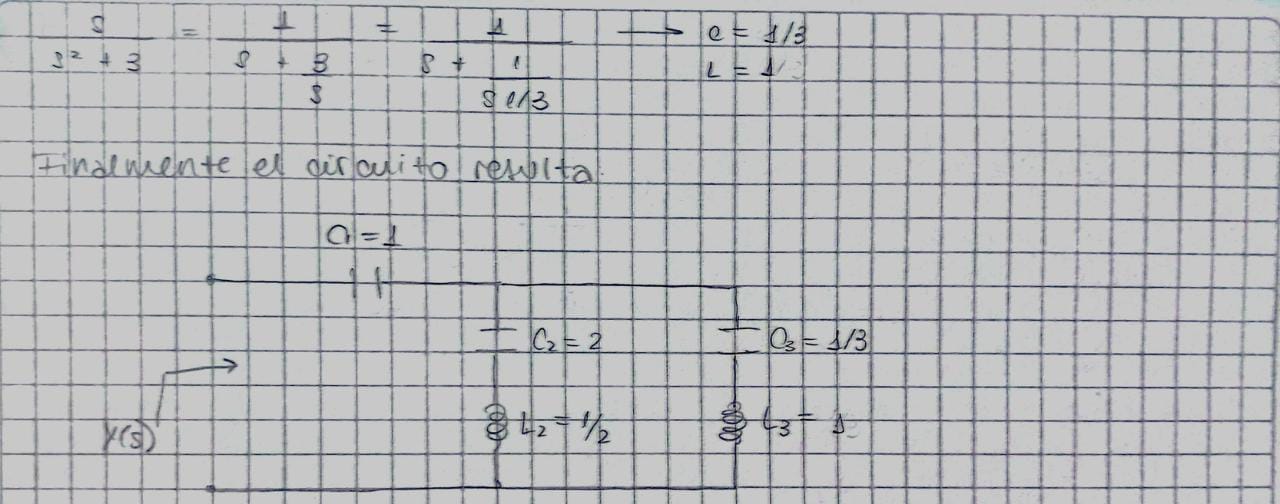 s / (s² + 3) = 1 / (s + 3/s) = 1 / (s + 1/(s 1/3)) → C = 1/3
L = 1
Finalmente el circuito resulta.
C1 = 1
C2 = 2 C3 = 1/3
Y(s) L2 = 1/2 L3 = 1